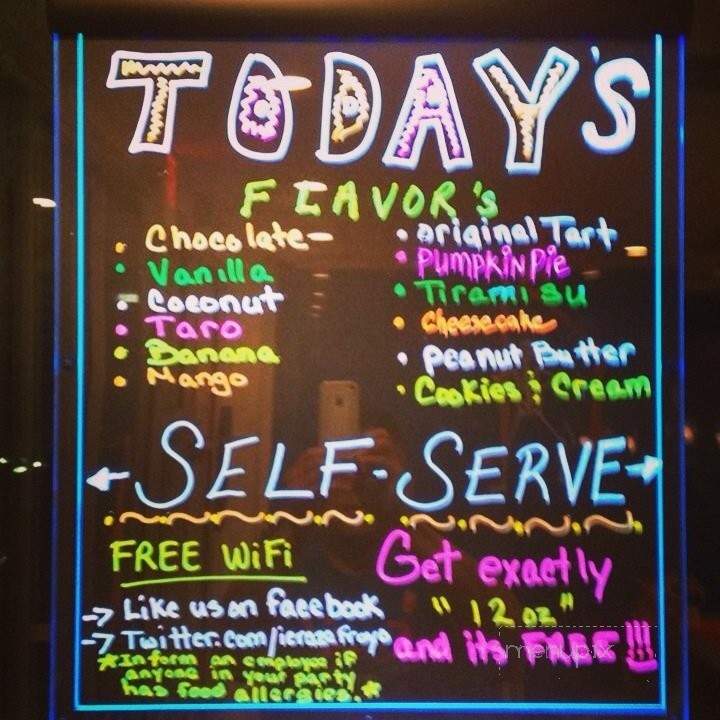 TODAY'S
FLAVOR's
• Chocolate
• Vanilla
• Coconut
• Taro
• Banana
• Mango
• original Tart
• PUMPKIN PIE
• Tiramisu
• Cheesecake
• peanut Butter
• Cookies & Cream
SELF-SERVE
FREE WiFi
Like us on facebook
Twitter.com/icrazefroyo
*Inform an employee if
anyone in your party
has food allergies.*
Get exactly
"12 oz"
and its FREE!!!
menupix